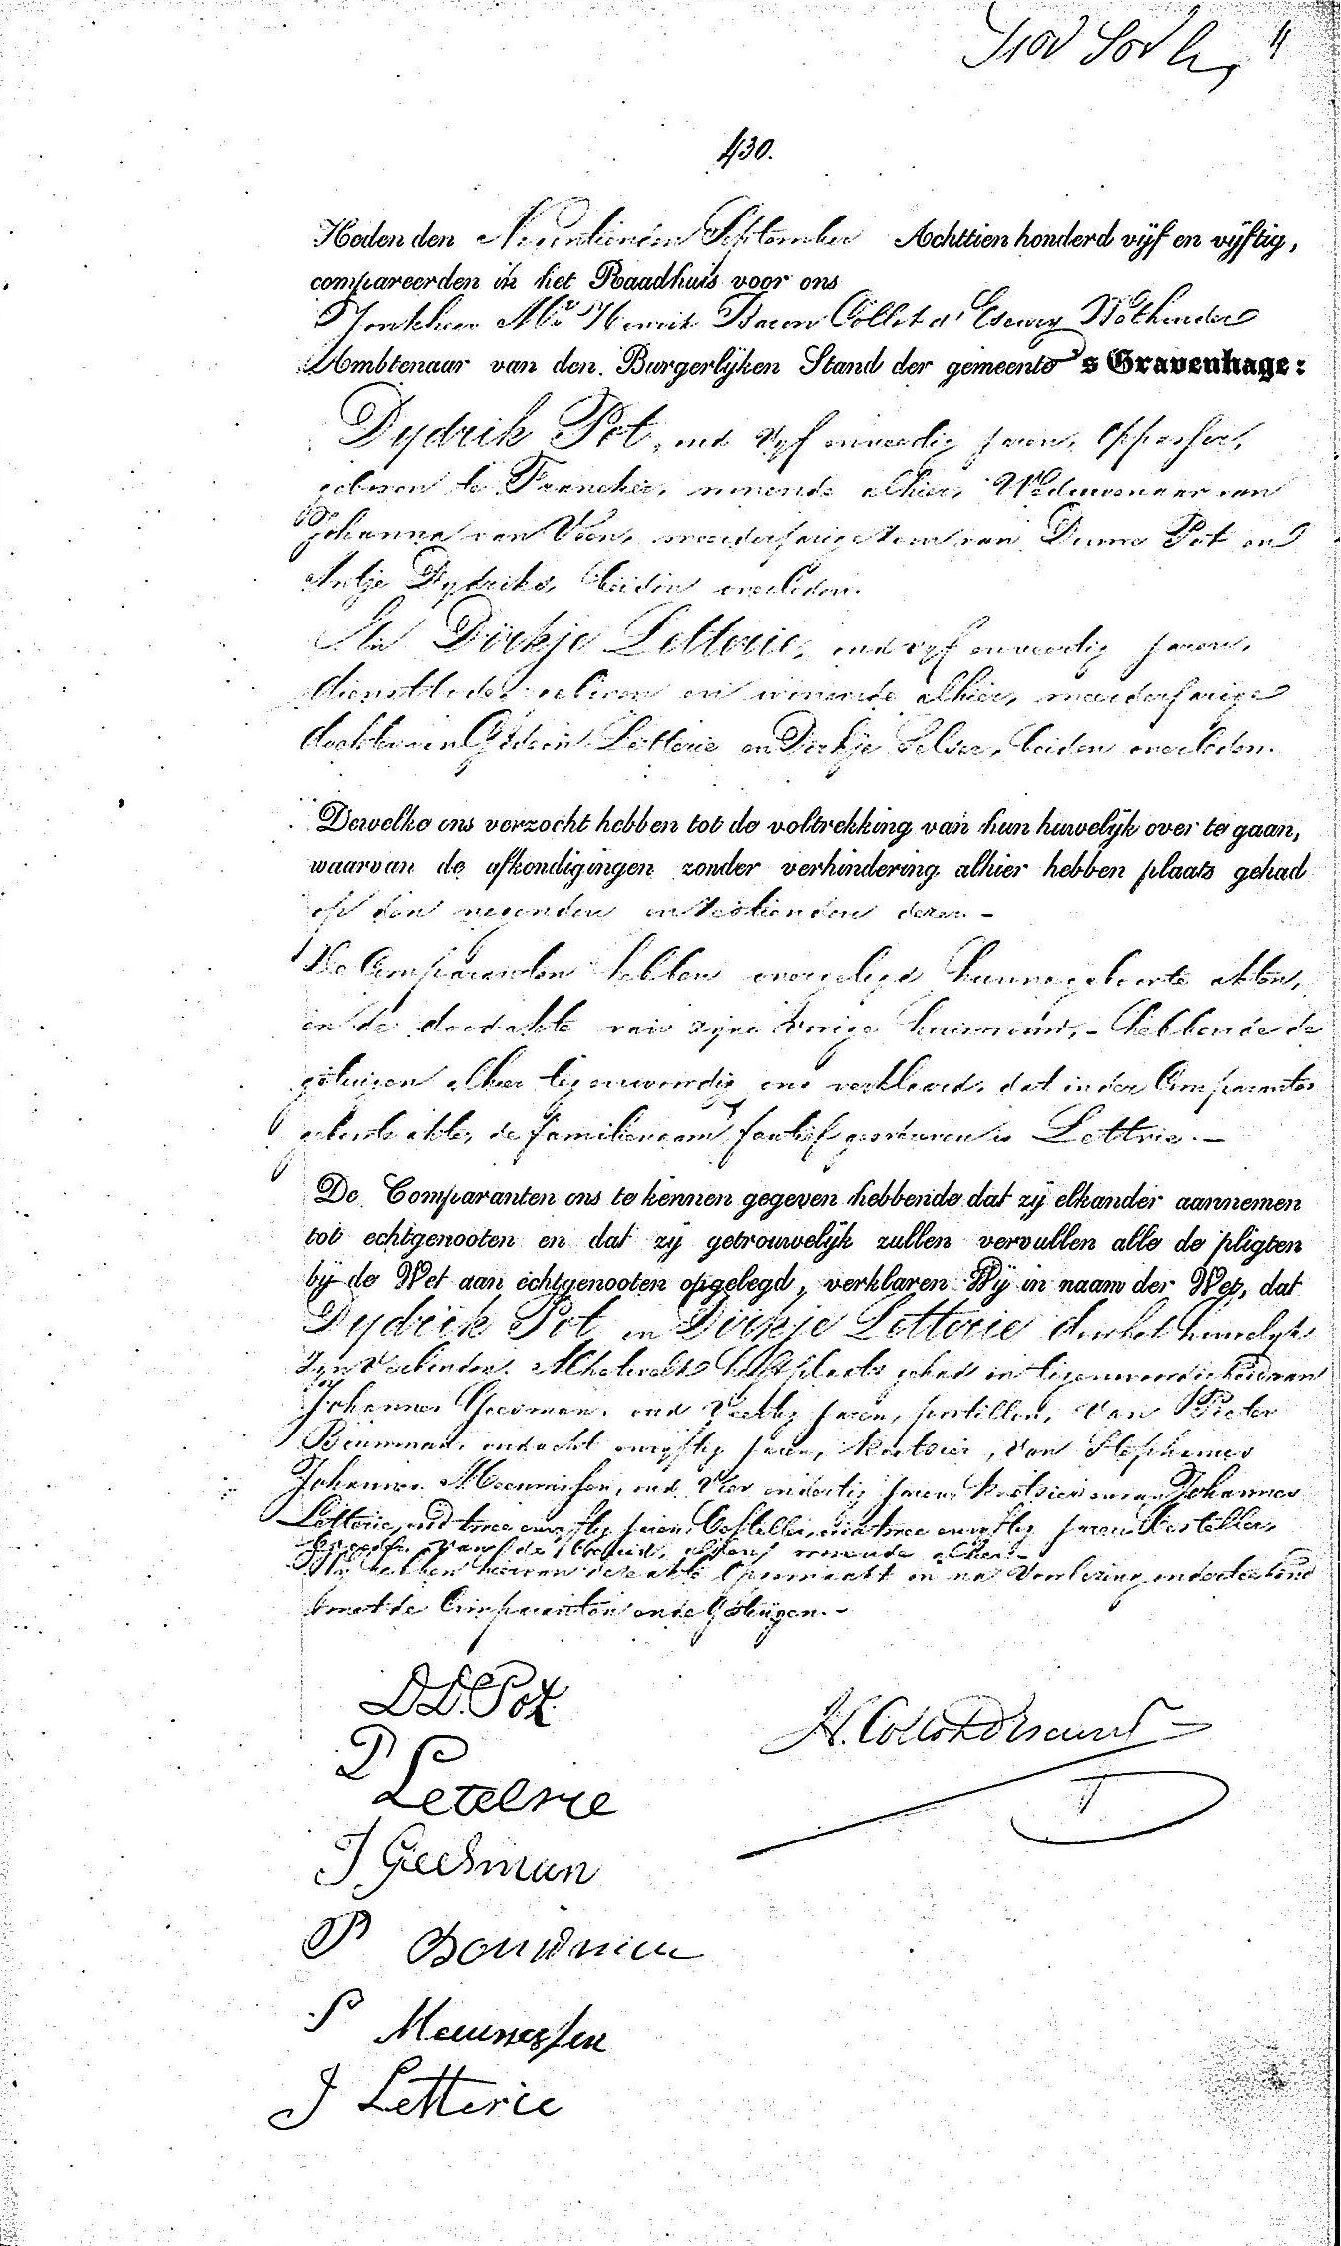 430.
Heden den Negentienden September Achttien honderd vijf en vijftig,
compareerden in het Raadhuis voor ons
Jonkheer Mr. Henrik Baron Collot d'Escury Wethouder
Ambtenaar van den Burgerlijken Stand der gemeente 's Gravenhage:
Dydrik Pot, oud vyf en veertig jaren, Oppasser,
geboren te Franeker, wonende alhier, Weduwenaar van
Johanna van Veen, meerderjarige zoon van Douwe Pot en
Antje Dydriks, beiden overleden.
En Dirkje Letterie, oud vyf en veertig jaren,
dienstbode, geboren en wonende alhier, meerderjarige
dochter van Gideon Letterie en Dirkje Selser, beiden overleden.
Dewelke ons verzocht hebben tot de voltrekking van hun huwelijk over te gaan,
waarvan de afkondigingen zonder verhindering alhier hebben plaats gehad
op den negenden en zestienden dezer. -
De Comparanten hebben overgelegd hunne geboorte akten,
en de doodakte van zijne vorige huisvrouw, - hebbende de
getuigen alhier tegenwoordig ons verklaard, dat in der Comparante
geboorte akte, de familienaam foutief geschreven is Lettrie. -
De Comparanten ons te kennen gegeven hebbende dat zij elkander aannemen
tot echtgenooten en dat zij getrouwelijk zullen vervullen alle de pligten
bij de Wet aan echtgenooten opgelegd, verklaren Wij in naam der Wet, dat
Dydrik Pot en Dirkje Letterie door het huwelijk
zyn verbonden. Al hetwelk heeft plaats gehad in tegenwoordigheid van
Johannes Geesman, oud veertig jaren, postillon, van Pieter
Bouwman, oud acht en vyftig jaren, koetsier, van Stephanus
Johannes Meeuwissen, oud vier en dertig jaren, koetsier en van Johannes
Letterie, oud twee en vyftig jaren, besteller,
broeder van de bruid, allen wonende alhier. -
Wij hebben hiervan deze akte opgemaakt en na voorlezing onderteekend
met de Comparanten en de Getuigen. -
D D. Pot
D Letelrie
H. Collot d'Escury
J Geesman
P Bouwman
S Meeuwessen
J Letterie